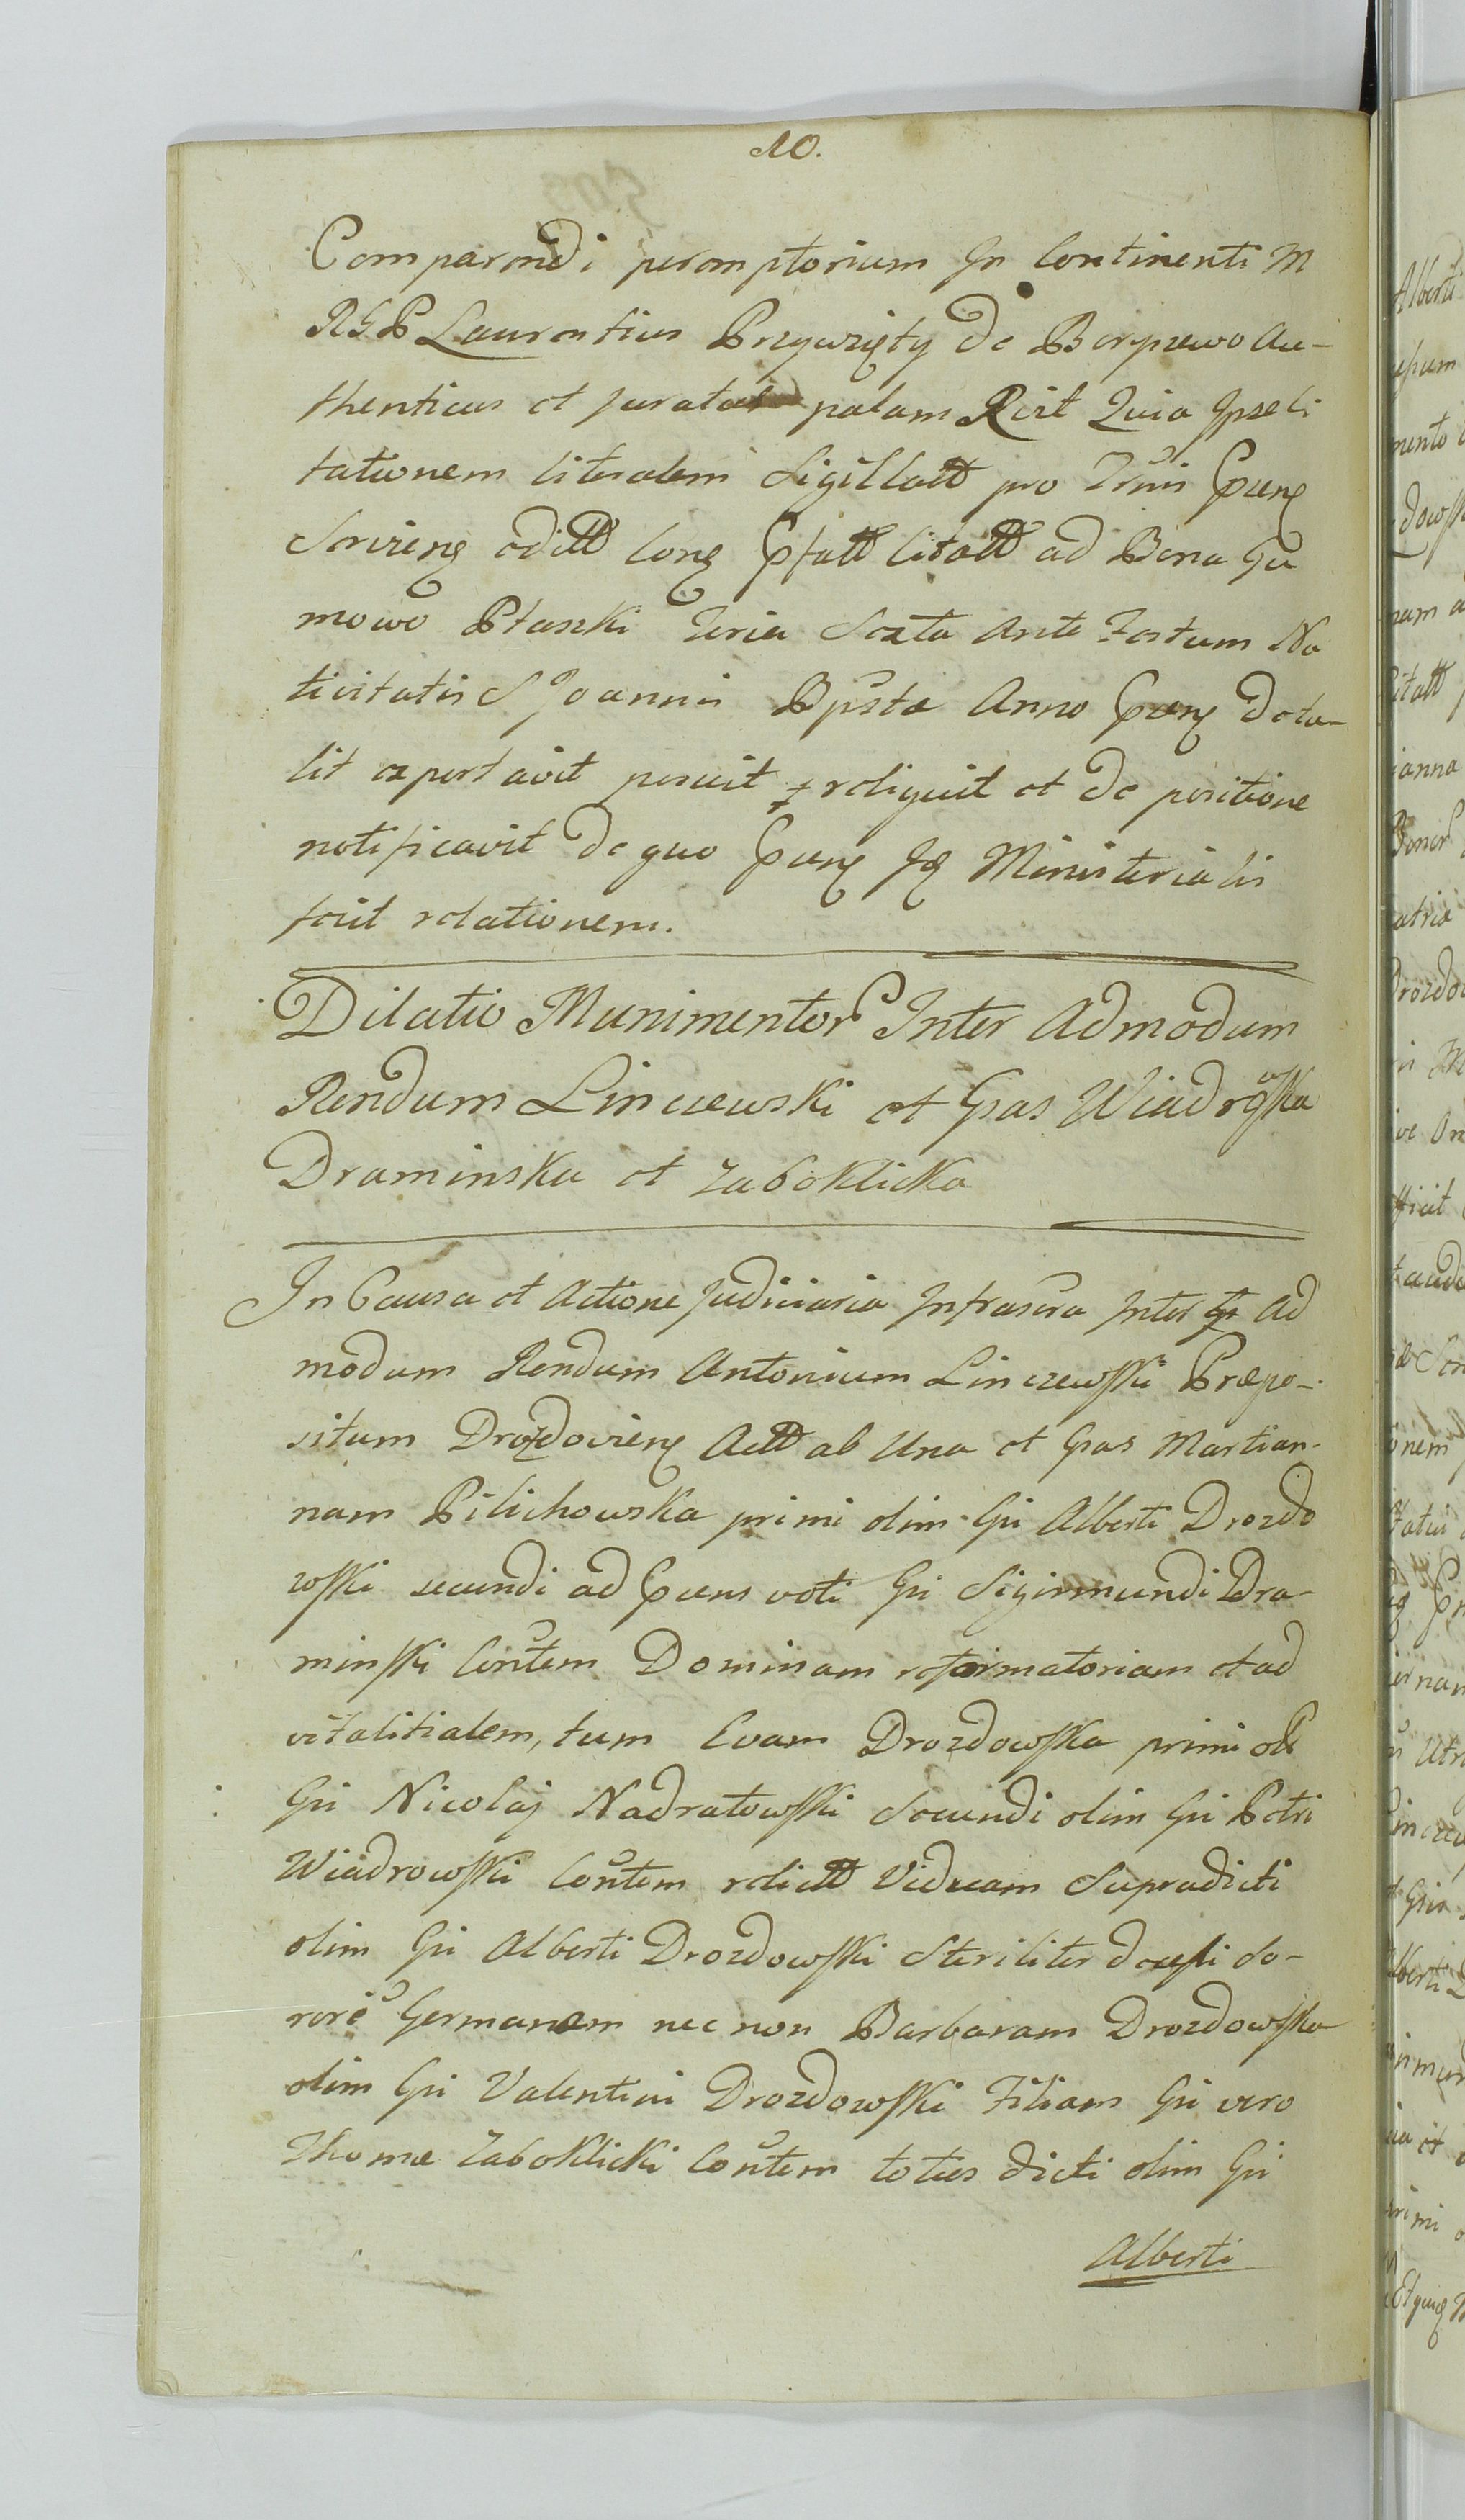 10.
Comparendi peremptorium In Continenti M
RGP Laurentius Przywzięty de Borzewo Au-
thenticus et juratus palam Rcit Quia Ipse Ci
tationem literalem Sigillatt pro Trmis Pruen
Scrizens editt Conq Pfatt Citatt ad Bona Gu
mowo Ptaszki Feria Sexta Ante Festum Na
tivitatis S Joannis Bpstæ Anno Pruen Detu-
lit exportavit posuit reliquit et de positione
notificavit de quo Pruen Idq Ministerialis
fecit relationem.
Dilatio Munimentor Inter Admodum
Rendum Linczewski et Gsas Wiadrowska
Draminska et Zaboklicka
In Causa et Actione Judiciaria Infrascra Inter Ad
modum Rendum Antonium Linczewski Præpo-
situm Drozdoviens Actt ab Una et Gsas Martian-
nam Pilichowska primi olim Gsi Alberti Drozdo
wski secundi ad Pruens voti Gsi Sigismundi Dra-
minski Contem Dominam reformatoriam et ad
vitalitialem, tum Evam Drozdowska primi ol
Gsi Nicolaj Nadratowski Secundi olim Gsi Petri
Wiadrowski Contem relictt Viduam Supradicti
olim Gsi Alberti Drozdowski Steriliter decessi So-
rore Germanam nec non Barbaram Drozdowska
olim Gsi Valentini Drozdowski Filiam Gsi vero
Thomæ Zaboklicki Contem toties dicti olim Gsi
Alberti